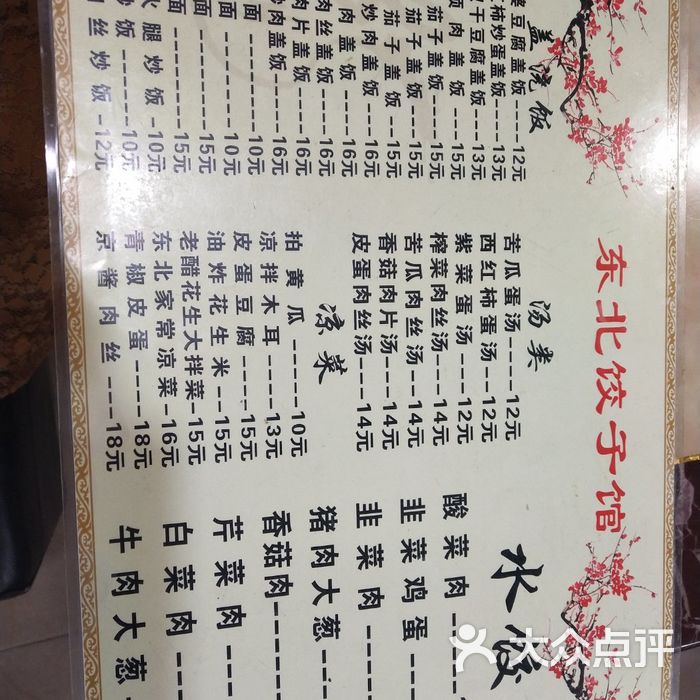 东北饺子馆
盖浇饭
豆腐盖饭-----12元
炒蛋盖饭----13元
干豆腐盖饭--13元
肉盖饭-----15元
茄子盖饭----15元
茄子盖饭----15元
炒肉盖饭----16元
肉片盖饭----16元
肉丝盖饭----16元
肉盖饭-----16元
面--------10元
面--------10元
面--------15元
面--------15元
火腿炒饭-10元
炒饭----10元
肉丝炒饭--12元
汤类
苦瓜蛋汤----12元
西红柿蛋汤--12元
紫菜蛋汤----12元
榨菜肉丝汤--14元
苦瓜肉丝汤--14元
香菇肉片汤--14元
皮蛋肉丝汤--14元
凉菜
拍黄瓜-----10元
凉拌木耳----13元
皮蛋豆腐----15元
油炸花生米--15元
老醋花生大拌菜-15元
东北家常凉菜-16元
青椒皮蛋----18元
京酱肉丝----18元
水饺
酸菜肉
韭菜鸡蛋
韭菜肉
猪肉大葱
香菇肉
芹菜肉
白菜肉
牛肉大葱
大众点评